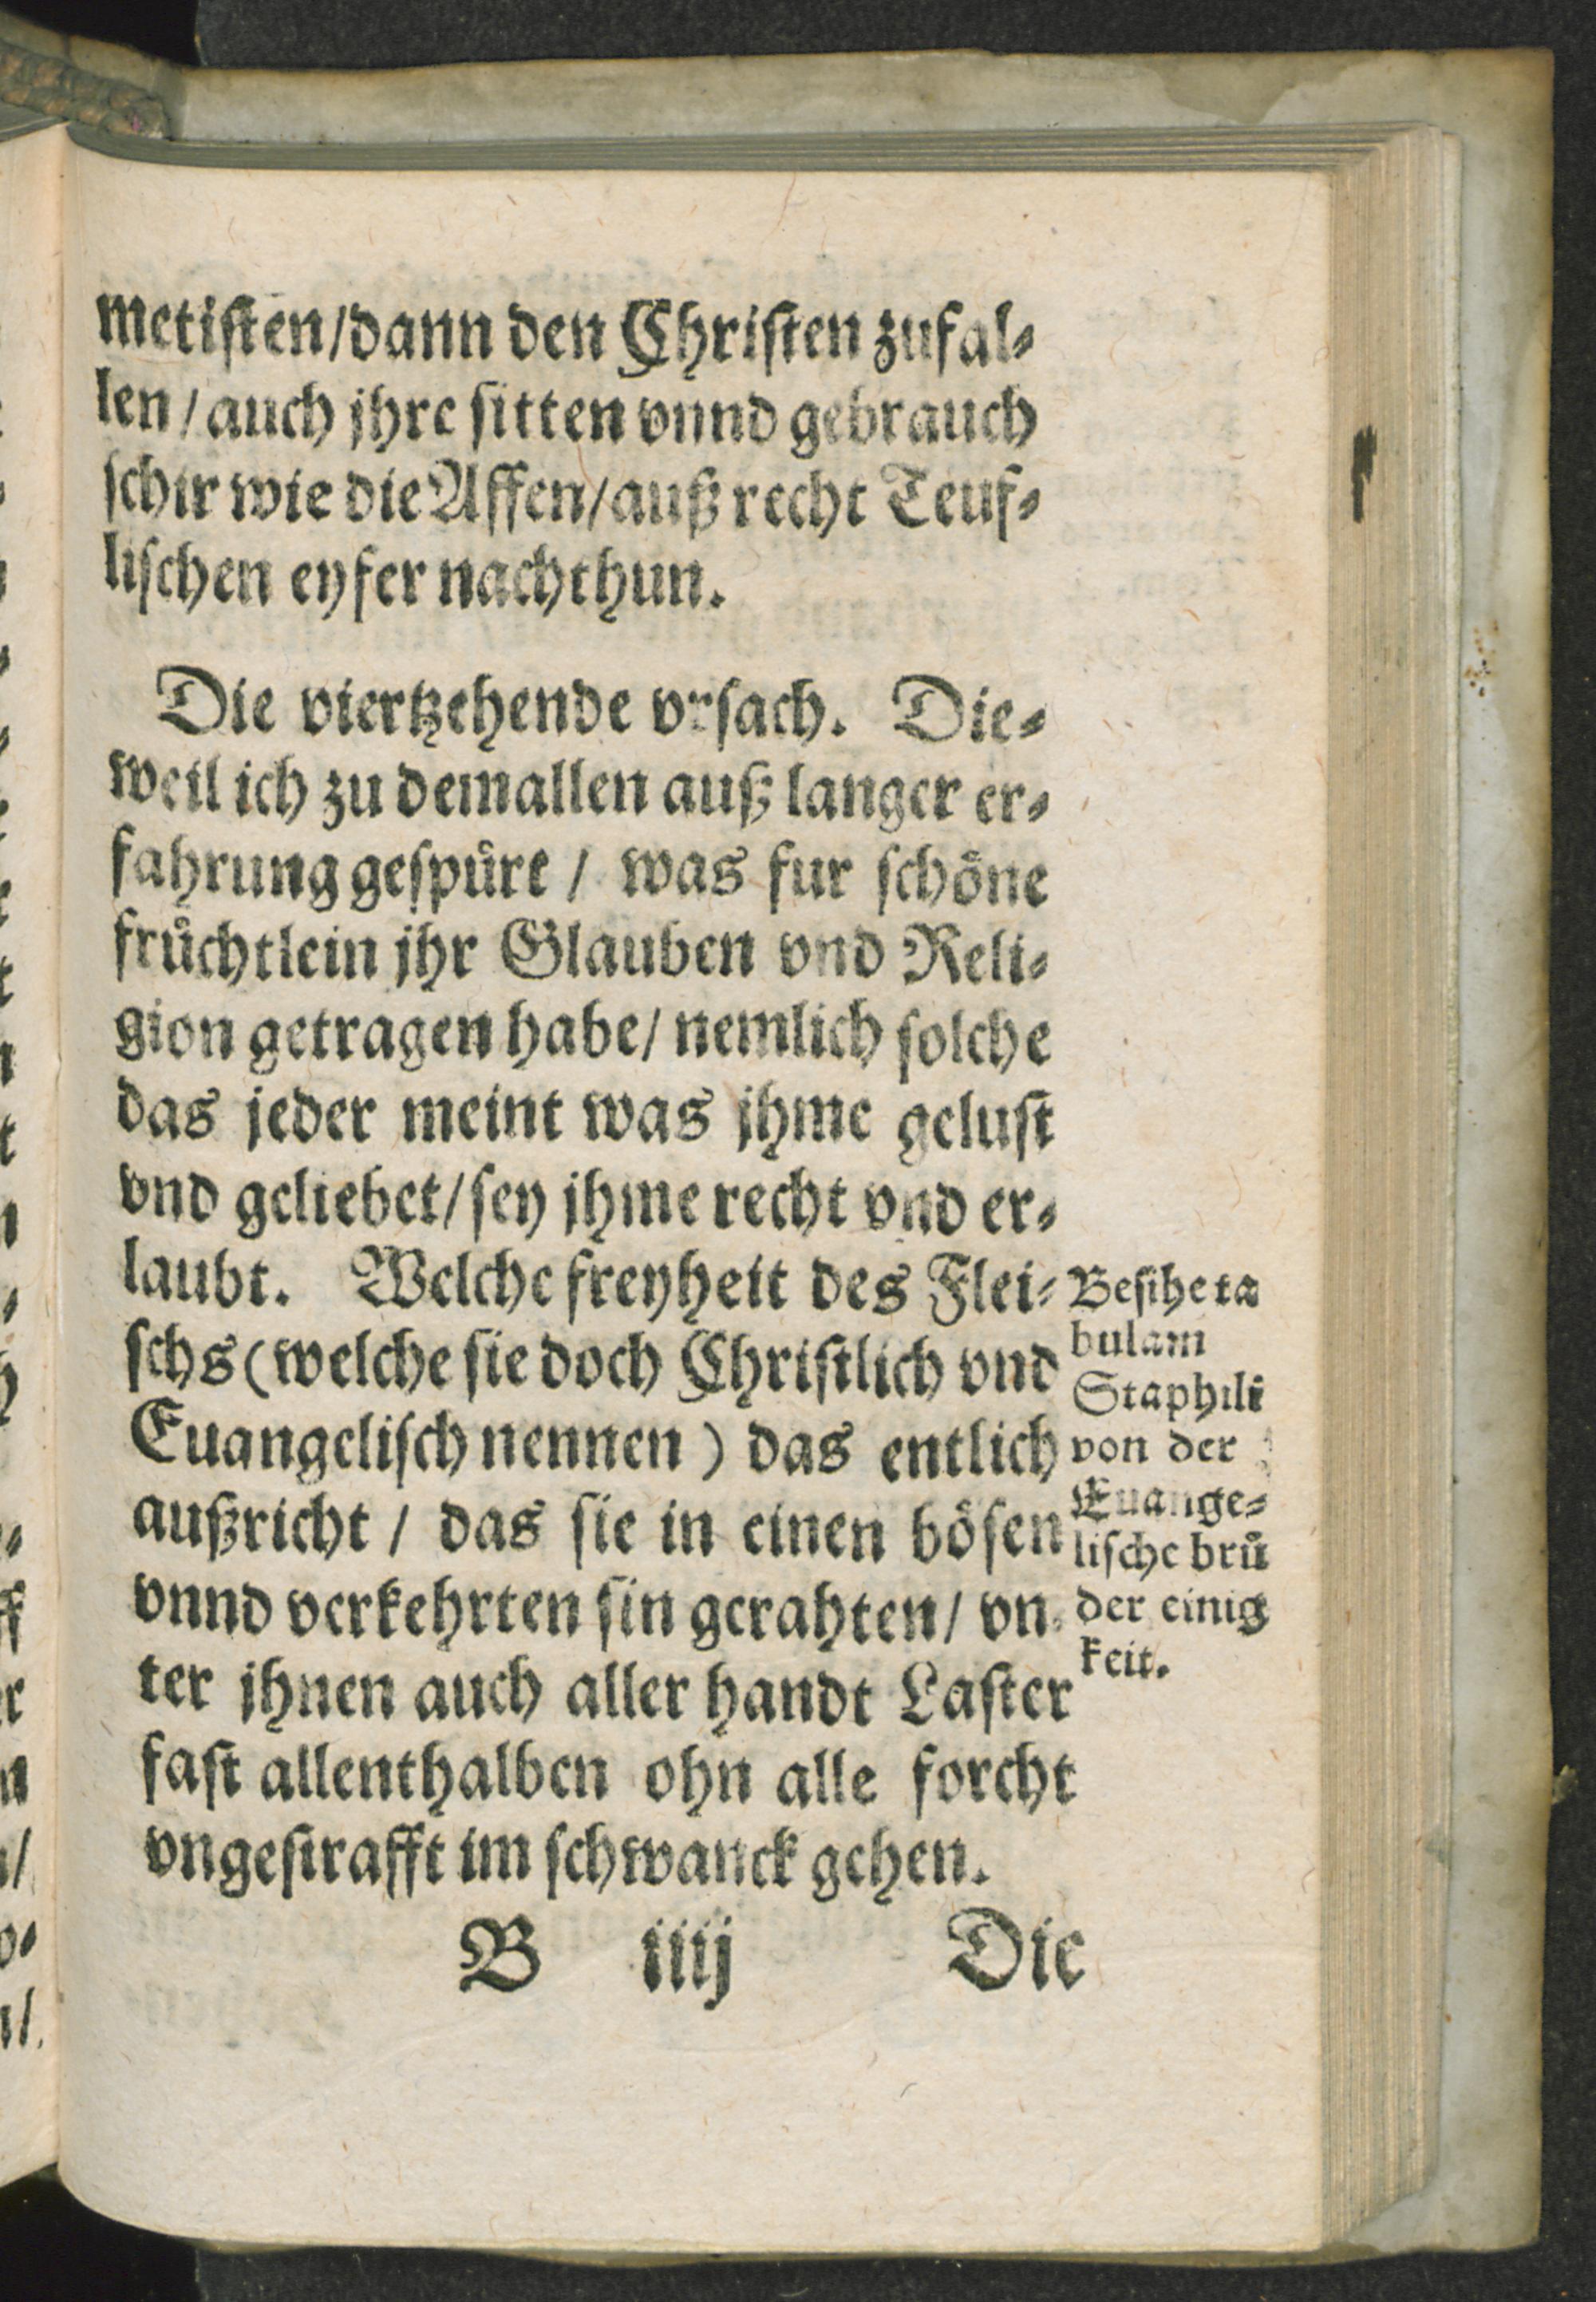 metiſten/dann den Chriſten zufal⸗
len/auch jhre ſitten vnnd gebrauch
ſchir wie die Affen/auß recht Teuf⸗
liſchen eyfer nachthun.
Die viertzehende vrſach. Die⸗
weil ich zu demallen auß langer er⸗
fahrung geſpuͤrt / was fur ſchoͤne
fruͤchtlein jhr Glauben vnd Reli⸗
gion getragen habe/ nemlich ſolche
das jeder meint was jhme geluſt
vnd geliebet/ſey jhme recht vnd er⸗
laubt. Welche freyheit des Flei⸗
ſchs (welche ſie doch Chriſtlich vnd
Euangeliſch nennen) das entlich
außricht / das ſie in einen boͤſen
vnnd verkehrten ſin gerahten/ vn
ter jhnen auch aller handt Laſter
faſt allenthalben ohn alle forcht
vngeſtrafft im ſchwanck gehen.
Beſihe ta
bulam
Staphili
von der
Euange⸗
liſche bruͤ
der einig
keit.
B iiij Die